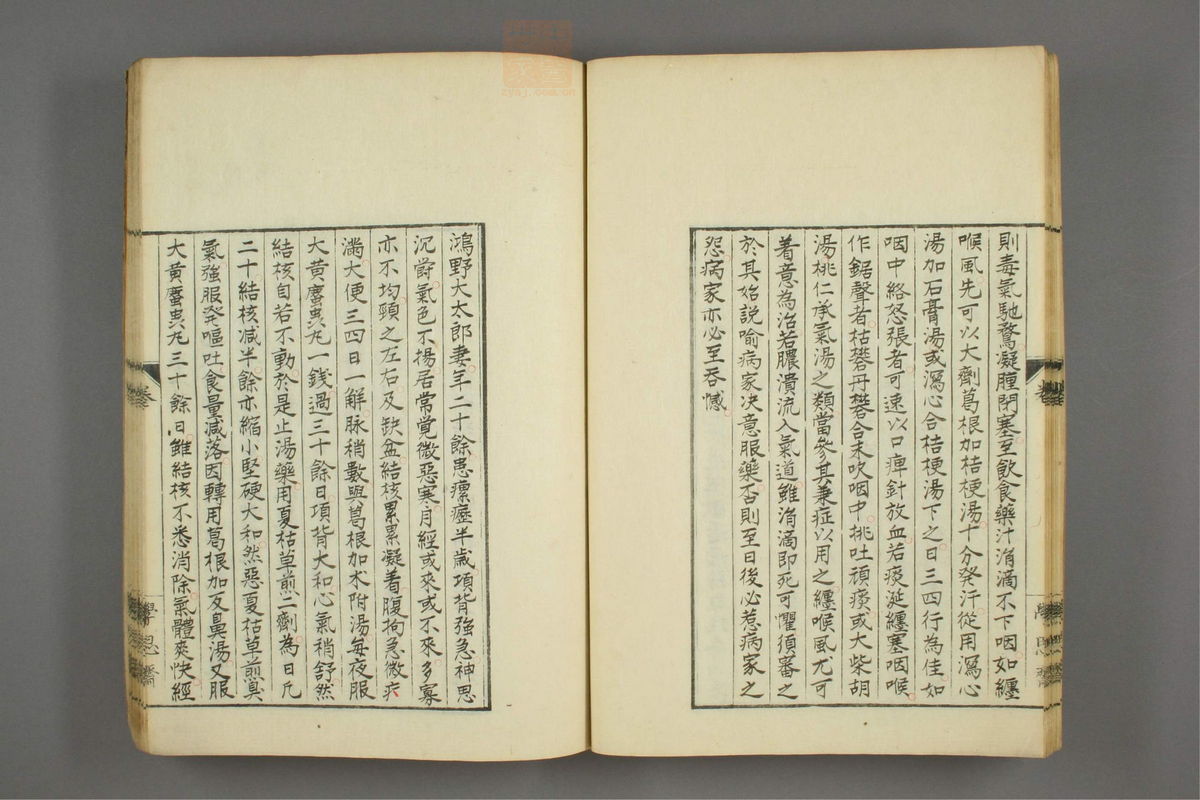 則毒氣馳騖凝腫閉塞至飲食藥汁涓滴不下咽如纏
喉風先可以大劑葛根加桔梗湯十分発汗從用瀉心
湯加石膏湯或瀉心合桔梗湯下之日三四行為佳如
咽中絡怒張者可速以口痺針放血若痰涎纏塞咽喉
作鋸聲者枯礬丹礬合末吹咽中挑吐頑痰或大柴胡
湯桃仁承氣湯之類當參其兼症以用之纏喉風尤可
着意為治若膿潰流入氣道雖涓滴即死可懼須審之
於其始説喻病家决意服藥否則至日後必惹病家之
怨病家亦必至吞憾
鴻野大太郎妻年二十餘患瘰癧半歲項背強急神思
沉欝氣色不揚居常覚微惡寒月經或來或不來多寡
亦不均頸之左右及缺盆結核累累凝着腹拘急微疚
滿大便三四日一解脉稍數與葛根加朮附湯每夜服
大黄䗪虫丸一銭過三十餘日項背大和心氣稍舒然
結核自若不動於是止湯藥用夏枯草煎二劑為日凡
二十結核减半餘亦縮小堅硬大和然惡夏枯草煎臭
氣強服発嘔吐食量减落因轉用葛根加反鼻湯又服
大黄䗪虫丸三十餘日雖結核不悉消除氣體爽快經
卷
學思齋